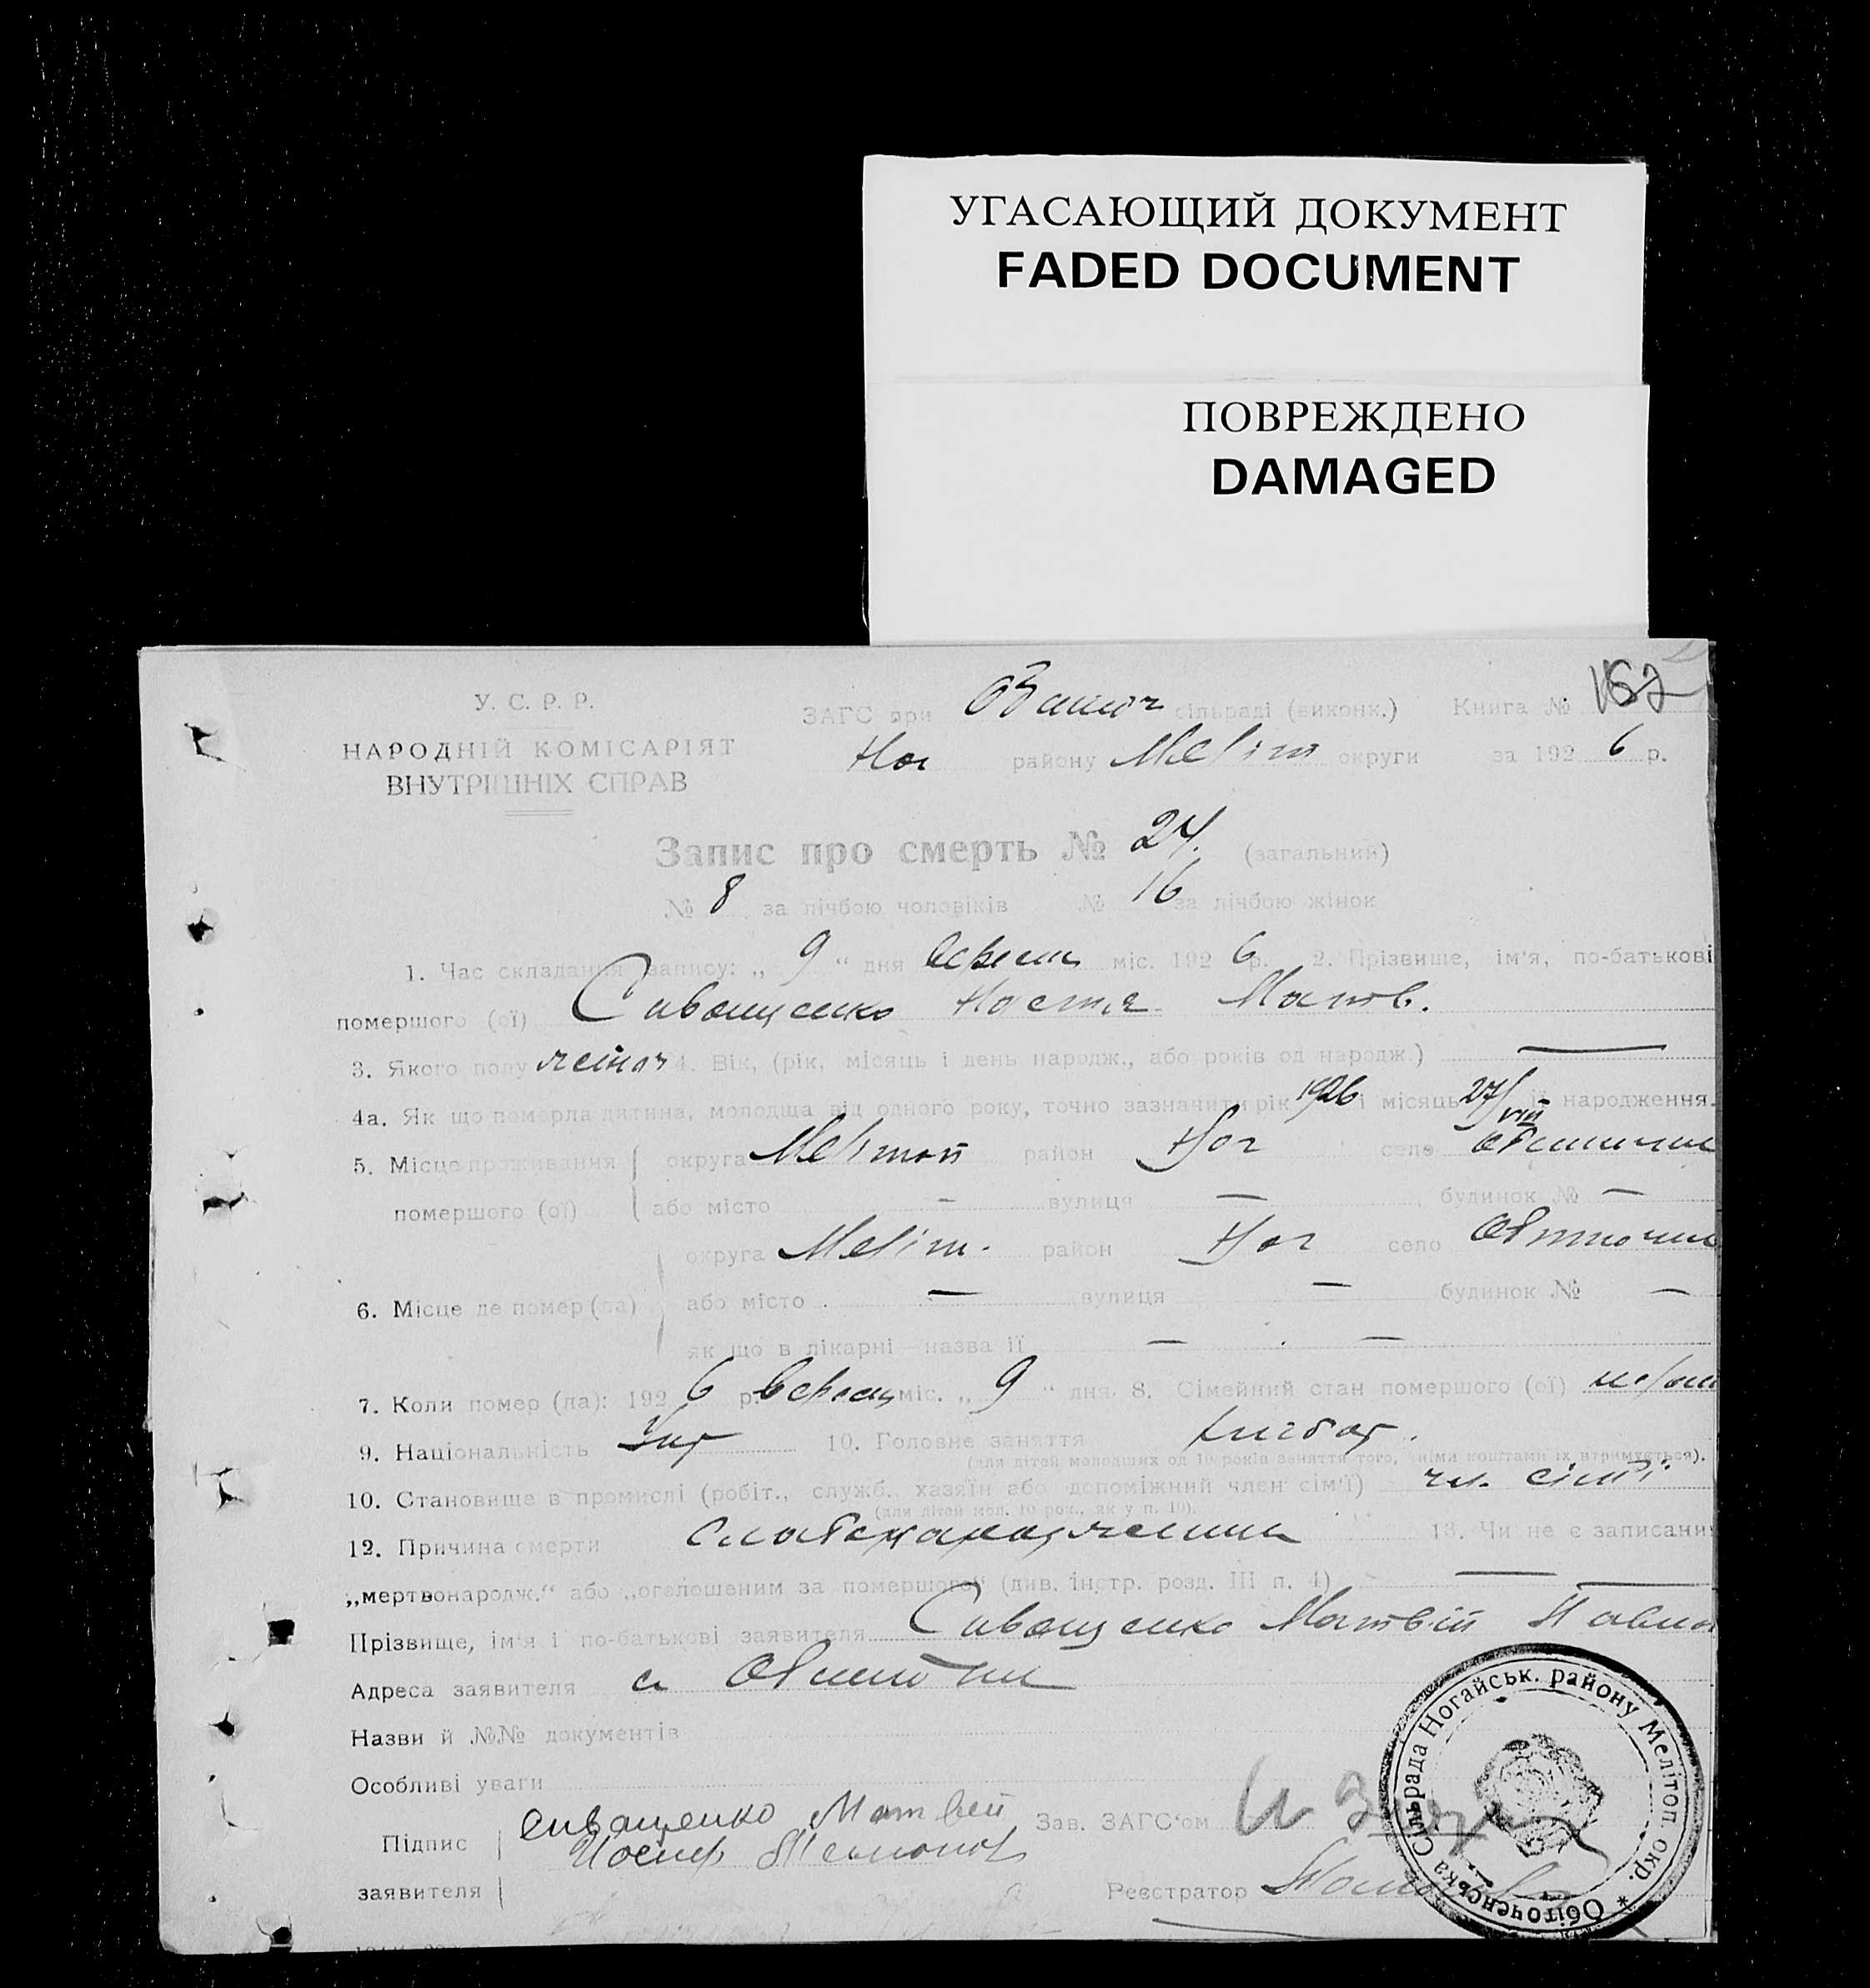 УГАСАЮЩИЙ ДОКУМЕНТ
FADED DOCUMENT
ПОВРЕЖДЕНО
DAMAGED
У. С. Р. Р.
НАРОДНІЙ КОМІСАРІЯТ
ВНУТРІШНІХ СПРАВ
ЗАГС при сільраді (виконк.) Книга №
Ног району Меліт округи за 192 6 р.
Запис про смерть № 24. (загальний)
№ 8 за лічбою чоловіків № 16 за лічбою жінок
1. Час складання запису: „ 9 “ дня вересн міс. 192 6 р. 2. Прізвище, ім'я, по-батькові
помершого (ої) Сиващенко Настя Матв.
3. Якого полу жіноч 4. Вік, (рік, місяць і день народж., або років од народж.) —
4а. Як що померла дитина, молодша від одного року, точно зазначити рік 1926 і місяць 27/VIII її народження.
5. Місце проживання округа Мелітоп район Ног село
помершого (ої) або місто - вулиця — будинок № —
округа Меліт. район Ног село
6. Місце де помер (ла) або місто — вулиця — будинок № —
як що в лікарні—назва її — —
7. Коли помер (ла): 192 6 р. вересн міс. „ 9 “ дня. 8. Сімейний стан помершого (ої)
9. Національність Укр 10. Головне заняття хлібор.
(для дітей молодших од 10 років заняття того, чиїми коштами їх втримується).
10. Становище в промислі (робіт., служб., хазяїн або допоміжний член сім'ї) чл. сім'ї
(для дітей мол. 10 рок., як у п. 10).
12. Причина смерти 13. Чи не є записаним
„мертвонародж.“ або „оголошеним за помершого“ (див. інстр. розд. III п. 4) — —
Прізвище, ім'я і по-батькові заявителя Сиващенко Матвій Павло
Адреса заявителя с.
Назви й №№ документів
Особливі уваги
Підпис Сиващенко Матвей Зав. ЗАГС'ом
Иосиф
заявителя Реєстратор
Обіточенська Сільрада Ногайськ. району Мелітоп. окр. *